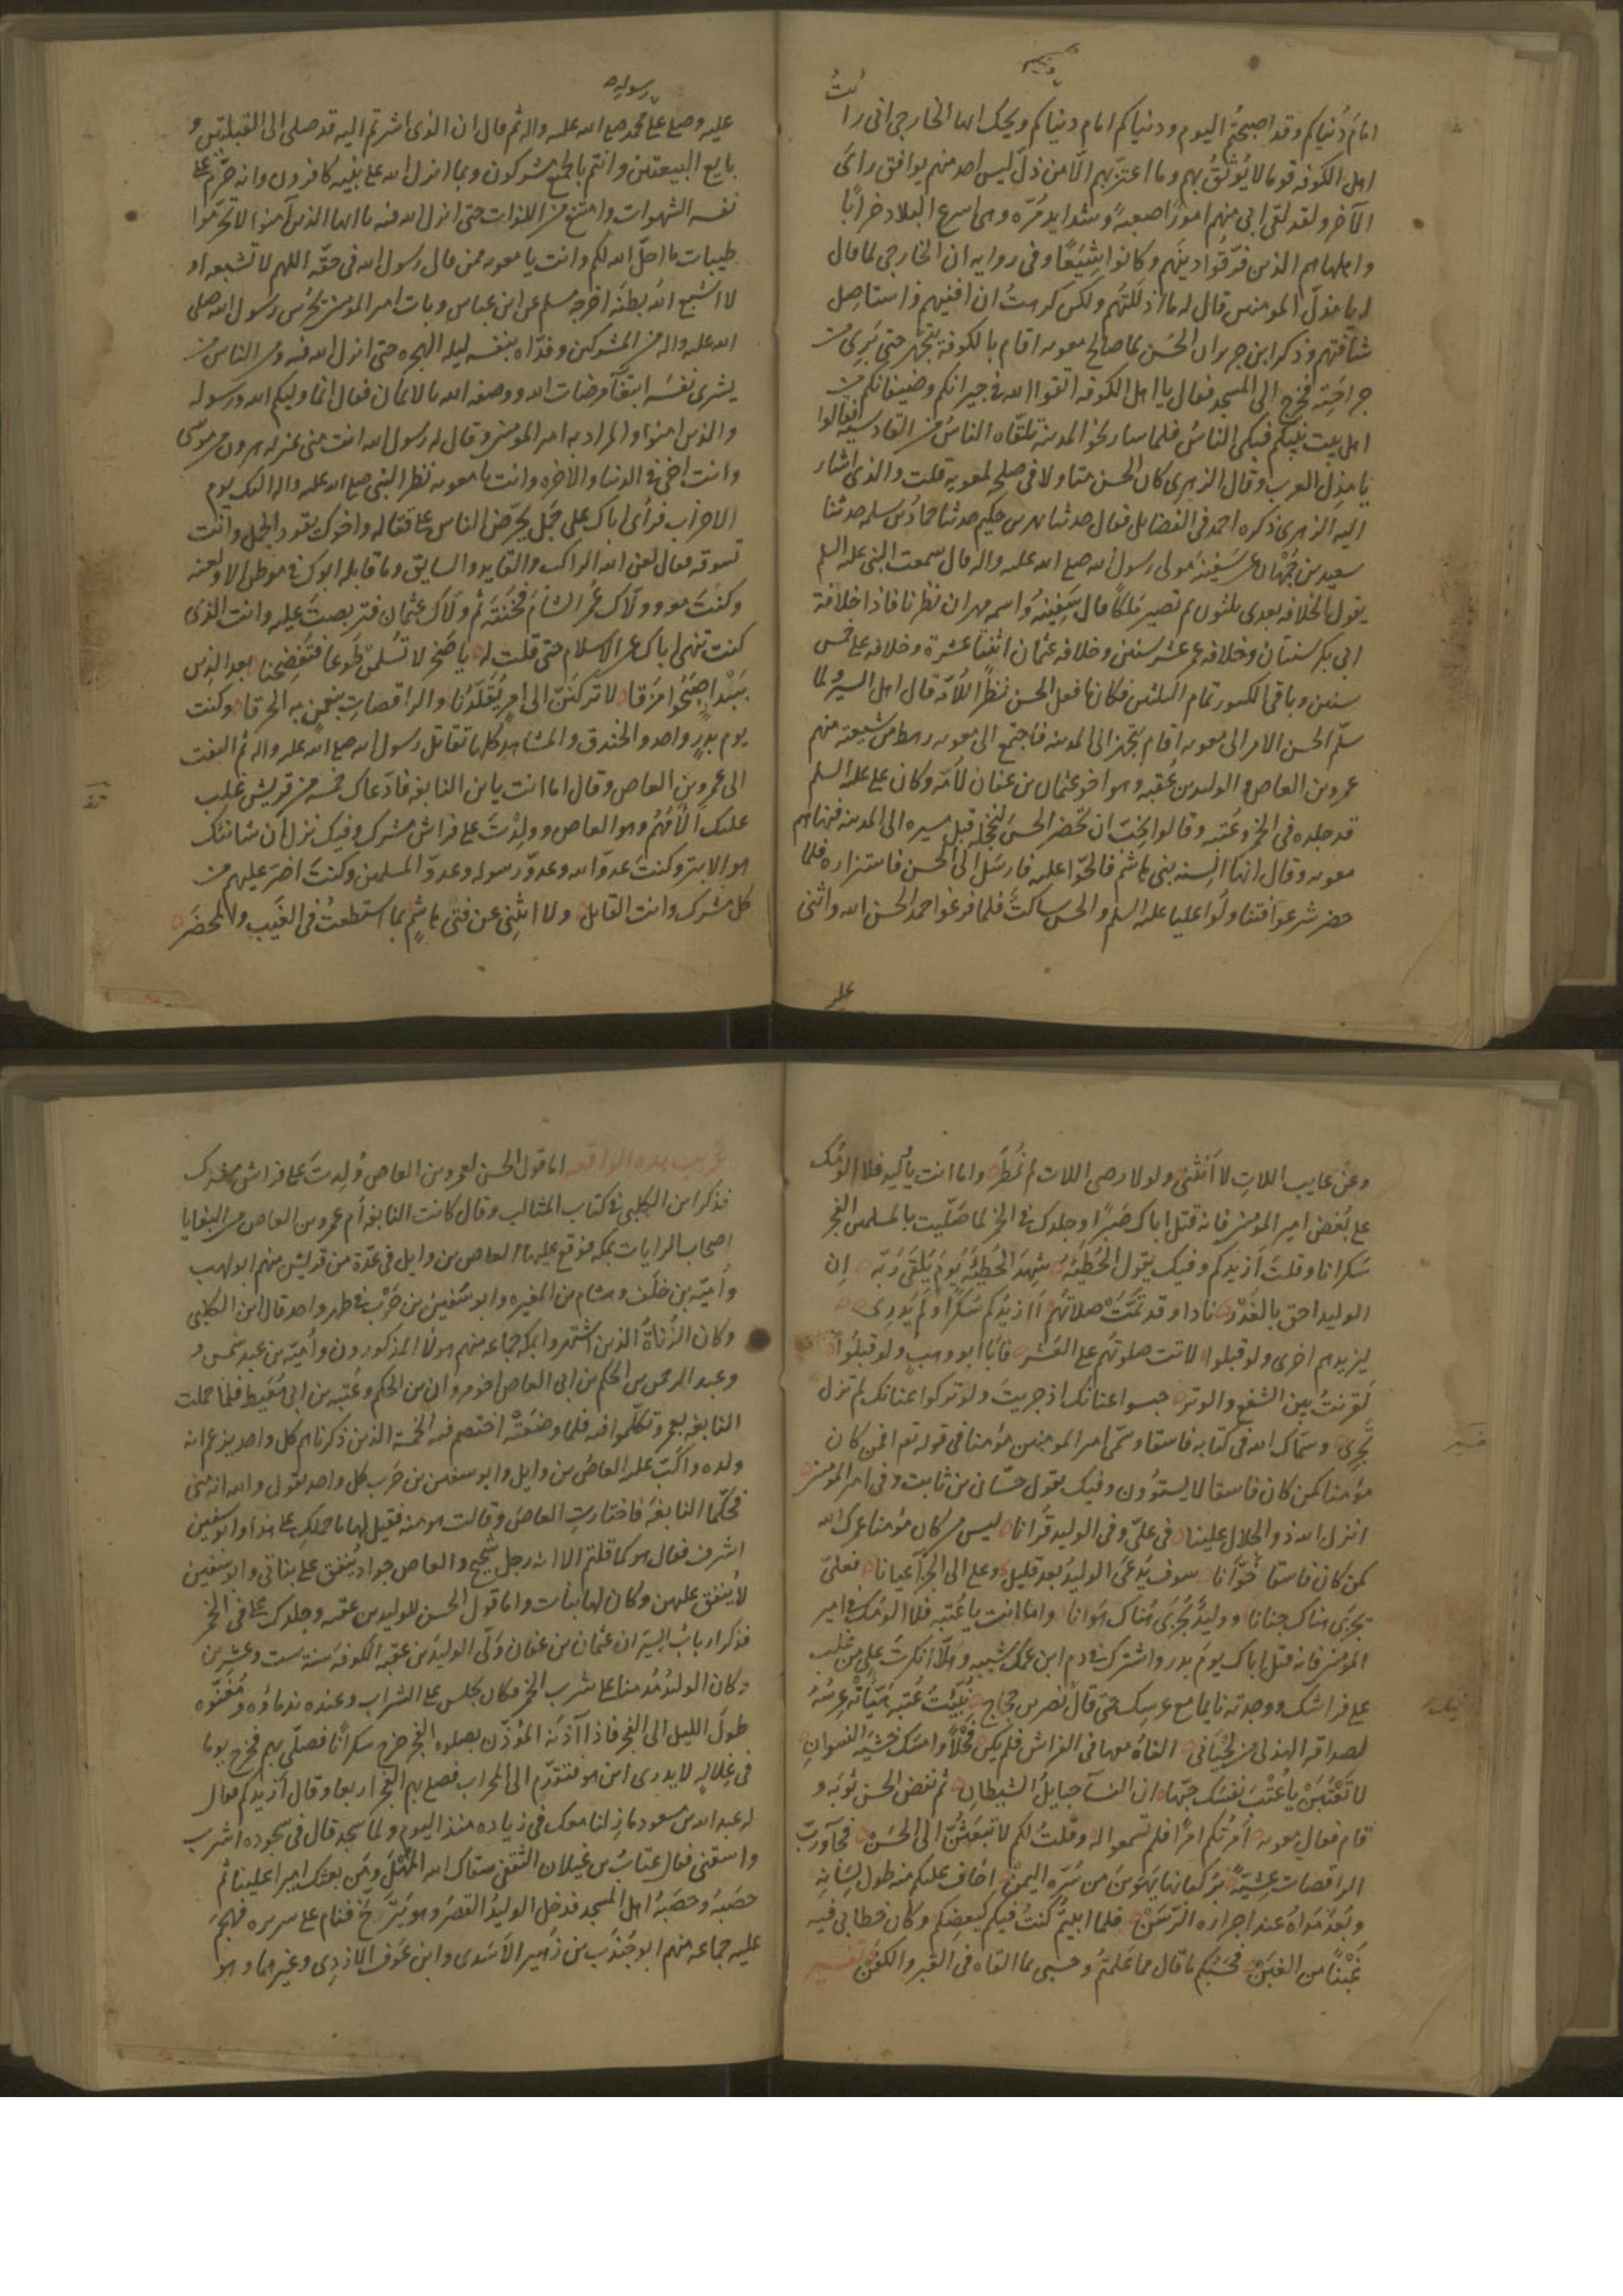 امام دُنياكم وقد اصبحتم اليوم ودنياكم امام دينكم ويحك ايها الخارجى انى رأيتُ
اهل الكوفه قوما لا يُوثَقُ بهم وما اعتزّ بهم الّا من ذلّ ليس احد منهم يوافق راى
الآخر ولقد لقى ابى منهم امورًا صعبةً وشدايد مُرّه وهى اسرع البلاد خرابًا
واهلها هم الذين فرّقوا دينَهم وكانوا شِيَعًا وفى روايه ان الخارجى لما قال
له يا مذلّ المومنين قال له ما اذللتُهم ولكن كرهتُ ان افنيهم واستاصل
شأفتهم وذكر ابن جرير ان الحَسن لما صالح معويه اقام بالكوفة يتجهّز حتى بَرِئ من
جراحَتِه فخرج الى المسجد فقال يا اهل الكوفه اتقوا الله فى جيرانكم وضيفانكم من
اهل بيت نبيّكم فبكى الناسُ فلما سار نحو المدينة تلقّاه الناسُ من القادسيّة فقالوا
يا مذل العرب وقال الزهرى كان الحسن متاولا فى صلحِه لمعويه قلت والذى اشار
اليه الزهرى ذكره احمد فى الفضايل فقال حدثنا بهز بن حكيم حدثنا حمادُ بن سلمه حدثنا
سعيد بن جُمْهان عن سَفِينَه مولى رسول الله صلى الله عليه واله قال سمعت النبى عليه السلم
يقول الخلافه بعدى ثلثون ثم تصير مُلكًا قال سَفِينَهُ واسمه مهران نظرنا فاذا خلافة
ابى بكر سنتان وخلافه عمر عشر سنين وخلافه عثمان اثنتا عشرة وخلافه على خمس
سنين وباقى الكسور تمام الثلثين فكان ما فعل الحسن نظرًا للأمّه قال اهل السير ولما
سلّم الحسن الامر الى معويه اقام يتجهز الى المدينه فاجتمع الى معويه رهط من شيعته منهم
عمرو بن العاص والوليد بن عُقبه وهو اخو عثمان بن عفان لأمّه وكان على عليه السلم
قد جلده فى الخمر وعُتبه وقالوا نحبّ ان تحضر الحسن لنخجله قبل مسيره الى المدينه فنهاهم
معويه وقال انها السنه بنى هاشم فالحّوا عليه فارسَل الى الحسن فاستزاره فلما
حضر شرعوا فتناولُوا عليا عليه السلم والحسن ساكتٌ فلما فرغوا حمد الحسن الله واثنى
عليه
عليه وصلى على محمد صلى الله عليه واله ثم قال ان الذى اشرتم اليه قد صلى الى القبلتين و
بايع البيعتين وانتم بالجميع مشركون وبما انزل الله على نبيّه كافرون وانه حرّم على
نفسه الشهوات وامتنع من اللذات حتى انزل الله فيه يا ايها الذين آمنوا لا تحرّموا
طيبات ما احلّ الله لكم وانت يا معويه ممن قال رسول الله فى حقّه اللهم لا تُشبعه او
لا اشبع الله بطنَه اخرجه مسلم عن ابن عباس وبات امير المومنين يحرُس رسول الله صلى
الله عليه واله من المشركين وفدّاه بنفسه ليله الهجره حتى انزل الله فيه ومن الناس من
يشرى نفسَه ابتغآء مرضات الله ووصفه الله بالايمان فقال انما وليكم الله ورسوله
والذين امنوا والمراد به امير المومنين وقال له رسول الله انت منى بمنزله هرون من موسى
وانت اخى فى الدنيا والاخره وانت يا معويه نظر النبى صلى الله عليه واله اليك يوم
الاحزاب فرأى اباك على جَمَل يحرّض الناس على قتاله واخوك يقود الجمل وانت
تسوقه فقال لعن الله الراكب والقايد والسايق وما قابله ابوك فى موطن الا ولعنه
وكنتَ معه وولّاك عُمر الشأمَ فخُنتَه ثم ولّاك عثمان فتربصتَ عليه وانت الذى
كنت تنهى اباك عن الاسلام حتى قلت له يا صَخر لا تُسلِمَنْ طَوعا فتَفضِحنا بعد الذين
ببَدْرٍ اصبَحُوا مِزَقا لا تركنَنّ الى امرٍ يُقَلّدُنا والراقصاتِ بنعمن به الحرقا وكنت
يوم بدرٍ واحد والخندق والمشاهدِ كلها تقاتل رسول الله صلى الله عليه واله ثم التفت
الى عمرو بن العاص وقال اما انت يابن النابغه فادّعاك خمسه من قريش غلب
عليك أَلأَمُهُم وهو العاص ووُلِدْتَ على فراش مشرك وفيك نزل ان شانئك
هو الابتر وكنتَ عدوّ الله وعدوّ رسوله وعدوّ المسلمين وكنتَ اضرّ عليهم من
كل مشرك وانت القايل ولا انثنى عن فتى هاشمٍ بما استطعتُ فى الغَيب والمحضَر
وعَنْ عايب اللاتِ لا اَنثَنى ولولا رضى اللات لم نُمطَر واما انت يا وليد فلا الومُك
على بُغض امير المومنين فانه قتل اباك صَبرًا وجلدك فى الخمر لما صَلّيت بالمسلمين الفجر
سَكرانا وقلتَ أزيدكم وفيك يقول الحُطَيئَه شهِدَ الحُطيئَه يَومَ يَلقى رَبّه اِن
الوليد احق بالعُذر نادا وقد تمّتْ صلاتُهم أازيدُكم سُكرًا ولم يَدرِى
ليزيدهم اخرى ولو قبلوا لاتت صلوتُهم على العُشر فأبَا ابو وهبٍ ولو قبلُوا
لَقرنتُ بين الشفع والوتر حبسوا عنانك اذ جريتَ ولو تركوا عنانك لم تزل
تَجرِى وسمّاك الله فى كتابه فاسقا وسمّى امير المومنين مؤمنا فى قوله تع افمن كان
مؤمنا كمن كان فاسقا لا يستوُون وفيك يقول حسّان بن ثابت وفى امير المومنين
انزل الله ذو الجلال علينا فى علىّ وفى الوليد قُرانا ليس من كان مؤمنا عمرك الله
كمن كان فاسقا خوّانا سوف يُدعَى الوليدُ بعد قليل وعلى الى الجزآء عيانا فعلىّ
يجزَى هناك جنانا ووليدٌ يُجزَى هُناك هَوانا واما انت يا عُتبه فلا الومُك فى امير
المومنين فانه قتل اباك يومَ بدر واشترك فى دم ابن عمّك شيبه وهَلّا انكرتَ على من غلب
على فراشك ووجدته نايما مع عرسِك حتى قال نصر بن حجاج نُبِّئتُ عُتبه هَيّأَتْهُ عِرسُهُ
لصداقه الهذلى من لِحيانى الفاه معها فى الفراش فلم يكن فَحلًا وامسَك خشيَة النسوانِ
لا تَعْتُبَنْ يا عُتْبَ نفسَك حبّها ان النسآ حبايلُ الشيطانِ ثم نفض الحسن ثوبَه و
قام فقال معويه أمرتكم امرًا فلم تسمعوا له وقلتُ لكم لا تبعَثُنّ الى الحَسَن فجآورَبّ
الراقصات عِشيَةً بركبانها يَهوينَ من سُرّه اليمنْ اخاف عليكم منه طول لِسَانِه
وبُعدَ مَداهُ عند اجراره الرّسَنْ فلما ابيتُم كنتُ فيكم كبعضِكم وكان خطابى فيه
غَبْنًا من الغَبَن فحَسبُكم ما قال مما عَلمتُم وحسبى بما القاه فى القبر والكفَن تفسير
غريب هذه الواقعه اما قول الحسن لعمرو بن العاص وُلِدتَ على فراش مشرك
فذكر ابن الكلبى فى كتاب المثالب وقال كانت النابغه أم عمرو بن العاص من البغايا
اصحاب الرايات بمكه فوقع عليها العاص بن وايل فى عدّة من قريش منهم ابو لهب
واُميّه بن خلف وهشام بن المغيره وابو سُفين بن حَرْب فى طهر واحد قال ابن الكلبى
وكان الزُناةُ الذين اشتهروا بمكه جماعه منهم هولآ المذكورون واُميّه بن عبد شمس و
وعبد الرحمن بن الحكم بن ابى العاص اخو مروان بن الحكم وعُتبه بن ابى مُعَيط فلما حملت
النابغه بعمرو تكلّموا فيه فلما وضعَتْه اختصم فيه الخمسة الذين ذكرناهم كل واحد يزعم انه
ولده واكَبّ عليه العاصُ بن وايل وابو سفين بن حَرب كل واحد يقول والله انه منى
فحكّما النابغَه فاختارتِ العاصَ وقالت هو منه فقيل لها ما حملك على هذا وابو سفين
اشرف فقال هو كما قلتم الا انه رجل شحيح والعاص جواد يُنفق على بناتى وابو سفين
لا يُنفق عليهن وكان لها بنات واما قول الحسن للوليد بن عقبه وجلدك على فى الخمر
فذكر اربابُ السِيَر ان عثمان بن عفان ولّى الوليدَ بن عقبه الكوفه سنة ست وعشرين
وكان الوليدُ مُدمنا على شرب الخمر فكان يجلس على الشراب وعنده ندماؤه ومُغَنّوه
طولَ الليل الى الفجر فاذا آذنَهُ المؤذّن بصلوه الفجر خرج سكرانًا فصلّى بهم فخرج يوما
فى غِلالِهٍ لا يدرى اين هو فتقدّم الى المحراب فصلى بهم الفجر اربعا وقال أزيدكم فقال
له عبد الله بن مسعود ما زلنا معك فى زياده منذ اليوم ولما سجد قال فى سجوده اشرب
واسقنى فقال عتابُ بن غيلان الثقفى سقاك الله المُهْل ومن بعثك اميرا علينا ثم
حصَبَهُ وحصَبَهُ اهل المسجد فدخل الوليدُ القصرَ وهو يترنّح فنام على سريره فهجمَ
عليه جماعه منهم ابو جُندَب بن زُهير الاَسَدى وابن عَوف الازدِى وغيرهما وهو